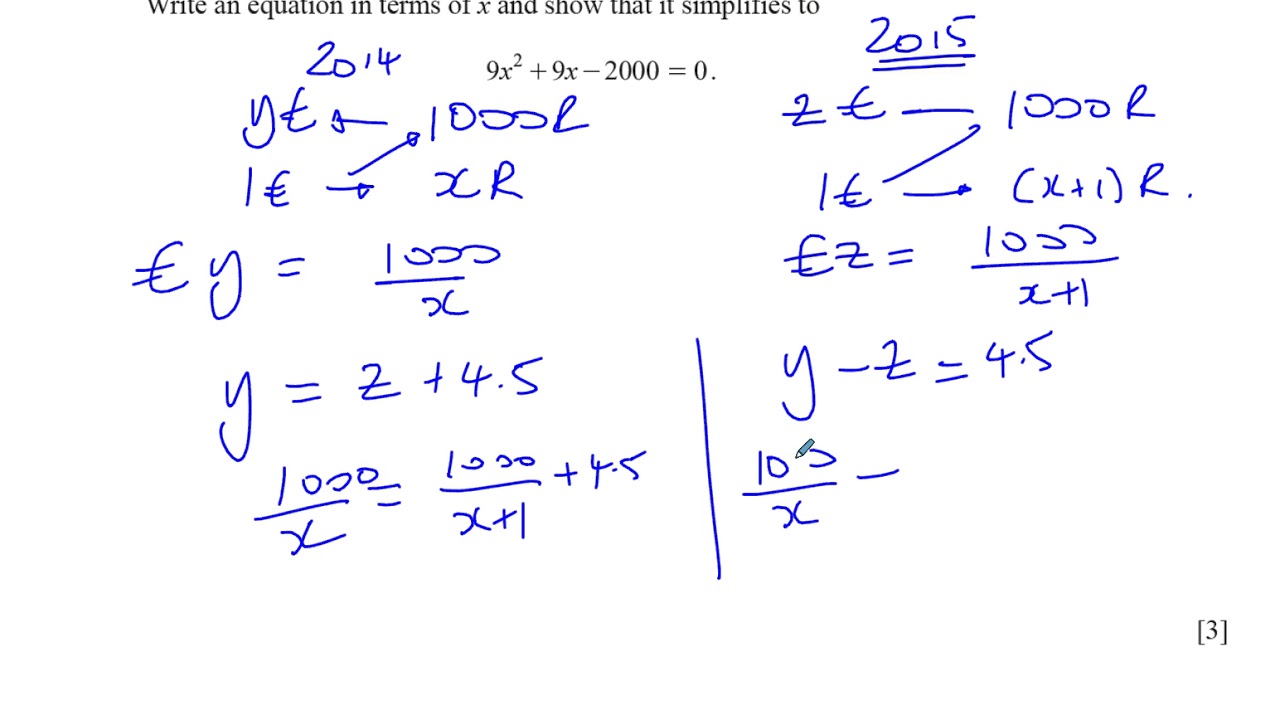 Write an equation in terms of x and show that it simplifies to
9x² + 9x − 2000 = 0.
2014
y€ ← 1000R
1€ → xR
€y = 1000/x
2015
z€ — 1000R
1€ → (x+1)R.
€z = 1000/(x+1)
y = z + 4.5
1000/x = 1000/(x+1) + 4.5
y − z = 4.5
1000/x −
[3]